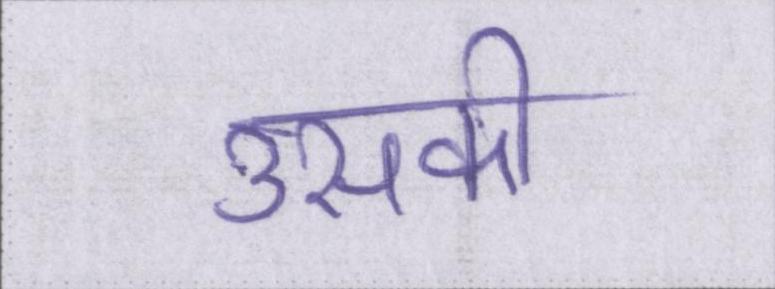 उसकी